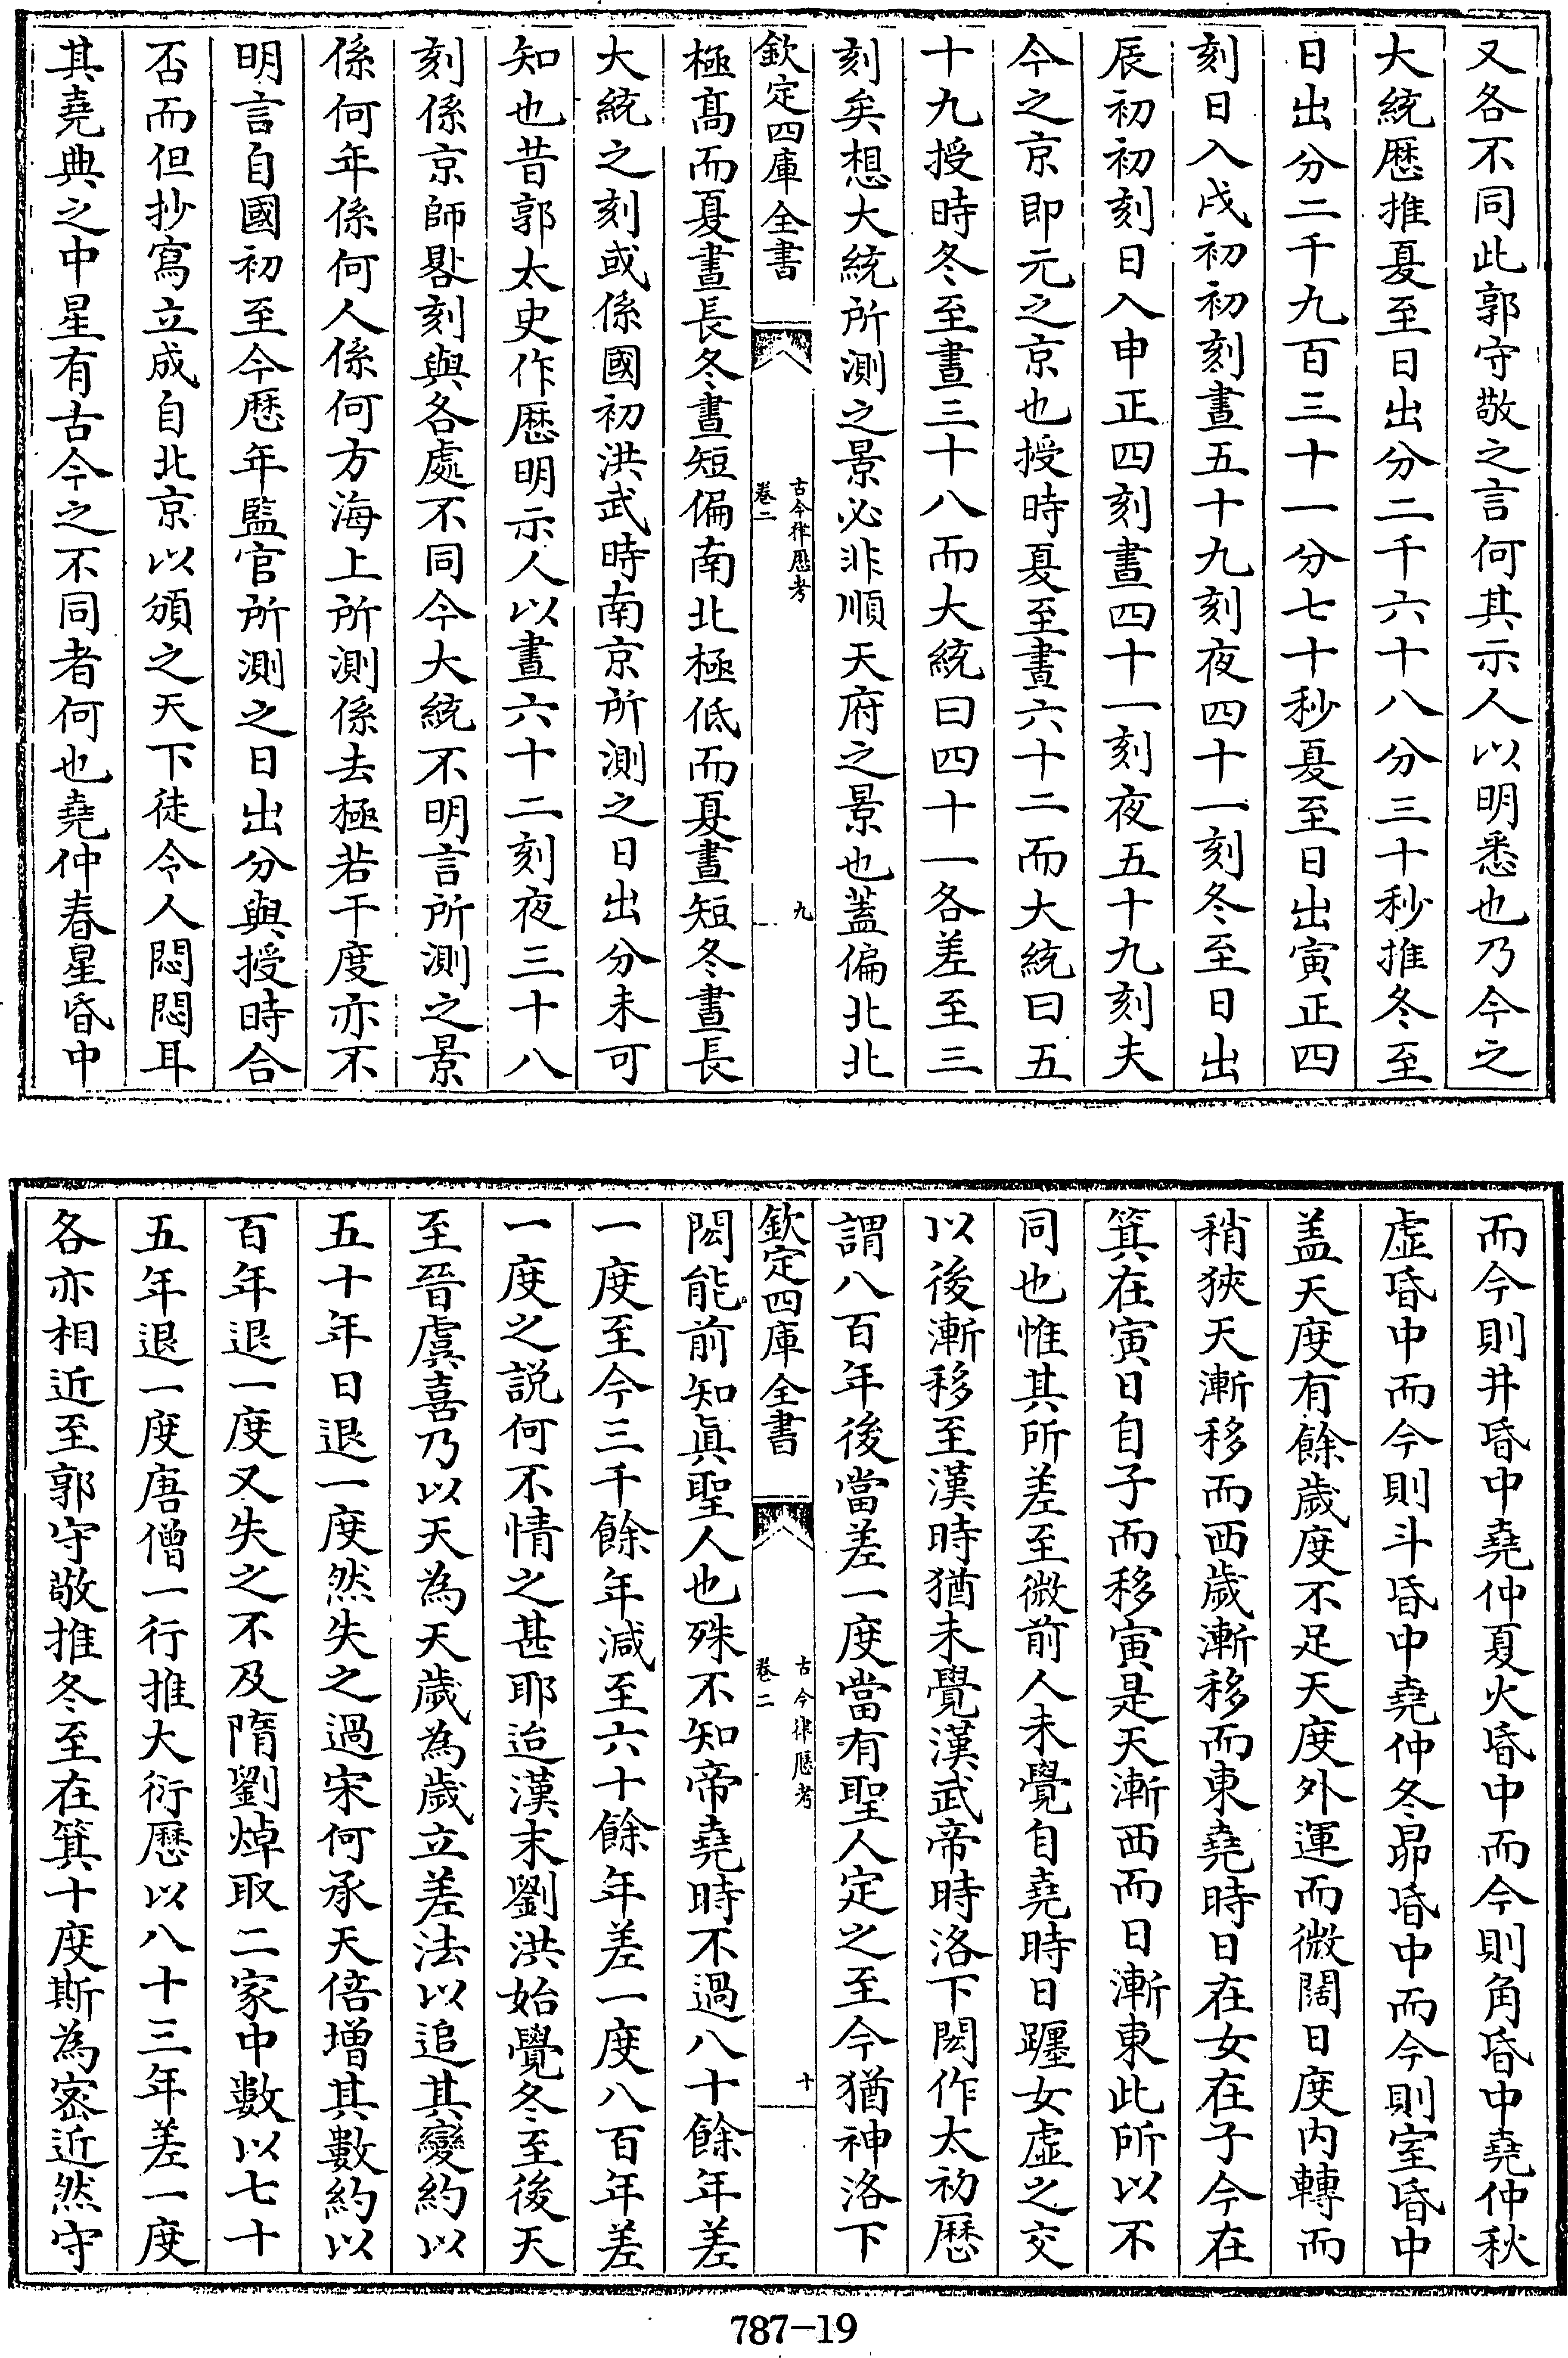 又各不同此郭守敬之言何其示人以明悉也乃今之
大統厯推夏至日出分二千六十八分三十秒推冬至
日出分二千九百三十一分七十秒夏至日出寅正四
刻日入戌初初刻晝五十九刻夜四十一刻冬至日出
辰初初刻日入申正四刻晝四十一刻夜五十九刻夫
今之京即元之京也授時夏至晝六十二而大統曰五
十九授時冬至晝三十八而大統曰四十一各差至三
刻矣想大統所測之景必非順天府之景也蓋偏北北
欽定四庫全書
古今律厯考
卷二
九
極髙而夏晝長冬晝短偏南北極低而夏晝短冬晝長
大統之刻或係國初洪武時南京所測之日出分未可
知也昔郭太史作厯明示人以晝六十二刻夜三十八
刻係京師晷刻與各處不同今大統不明言所測之景
係何年係何人係何方海上所測係去極若干度亦不
明言自國初至今厯年監官所測之日出分與授時合
否而但抄寫立成自北京以頒之天下徒令人悶悶耳
其堯典之中星有古今之不同者何也堯仲春星昏中
而今則井昏中堯仲夏火昏中而今則角昏中堯仲秋
虛昏中而今則斗昏中堯仲冬昴昏中而今則室昏中
盖天度有餘歲度不足天度外運而微闊日度内轉而
稍狹天漸移而西歲漸移而東堯時日在女在子今在
箕在寅日自子而移寅是天漸西而日漸東此所以不
同也惟其所差至微前人未覺自堯時日躔女虛之交
以後漸移至漢時猶未覺漢武帝時洛下閎作太初厯
謂八百年後當差一度當有聖人定之至今猶神洛下
欽定四庫全書
古今律厯考
卷二
十
閎能前知真聖人也殊不知帝堯時不過八十餘年差
一度至今三千餘年減至六十餘年差一度八百年差
一度之説何不情之甚耶迨漢末劉洪始覺冬至後天
至晉虞喜乃以天為天歲為歲立差法以追其變約以
五十年日退一度然失之過宋何承天倍增其數約以
百年退一度又失之不及隋劉焯取二家中數以七十
五年退一度唐僧一行推大衍厯以八十三年差一度
各亦相近至郭守敬推冬至在箕十度斯為宻近然守
787-19